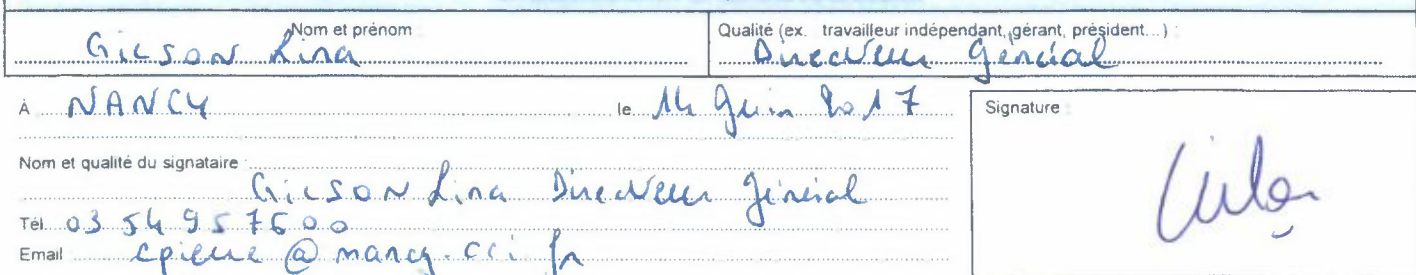 Nom et prénom :
Qualité (ex. travailleur indépendant, gérant, président...) :
GILSON Lina
Directeur Général
À NANCY le 14 Juin 2017
Signature :
Nom et qualité du signataire :
GILSON Lina Directeur Général
Tél. 03 54 95 76 00
Email cpierre@nancy.cci.fr